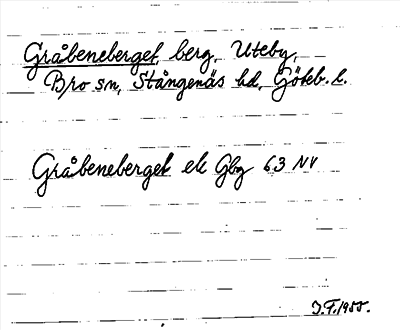 Gråbeneberget, berg, Uteby,
Bro sn, Stångenäs hd, Göteb. l.
Gråbeneberget ek Gbg 63 NV
I.F. 1955.